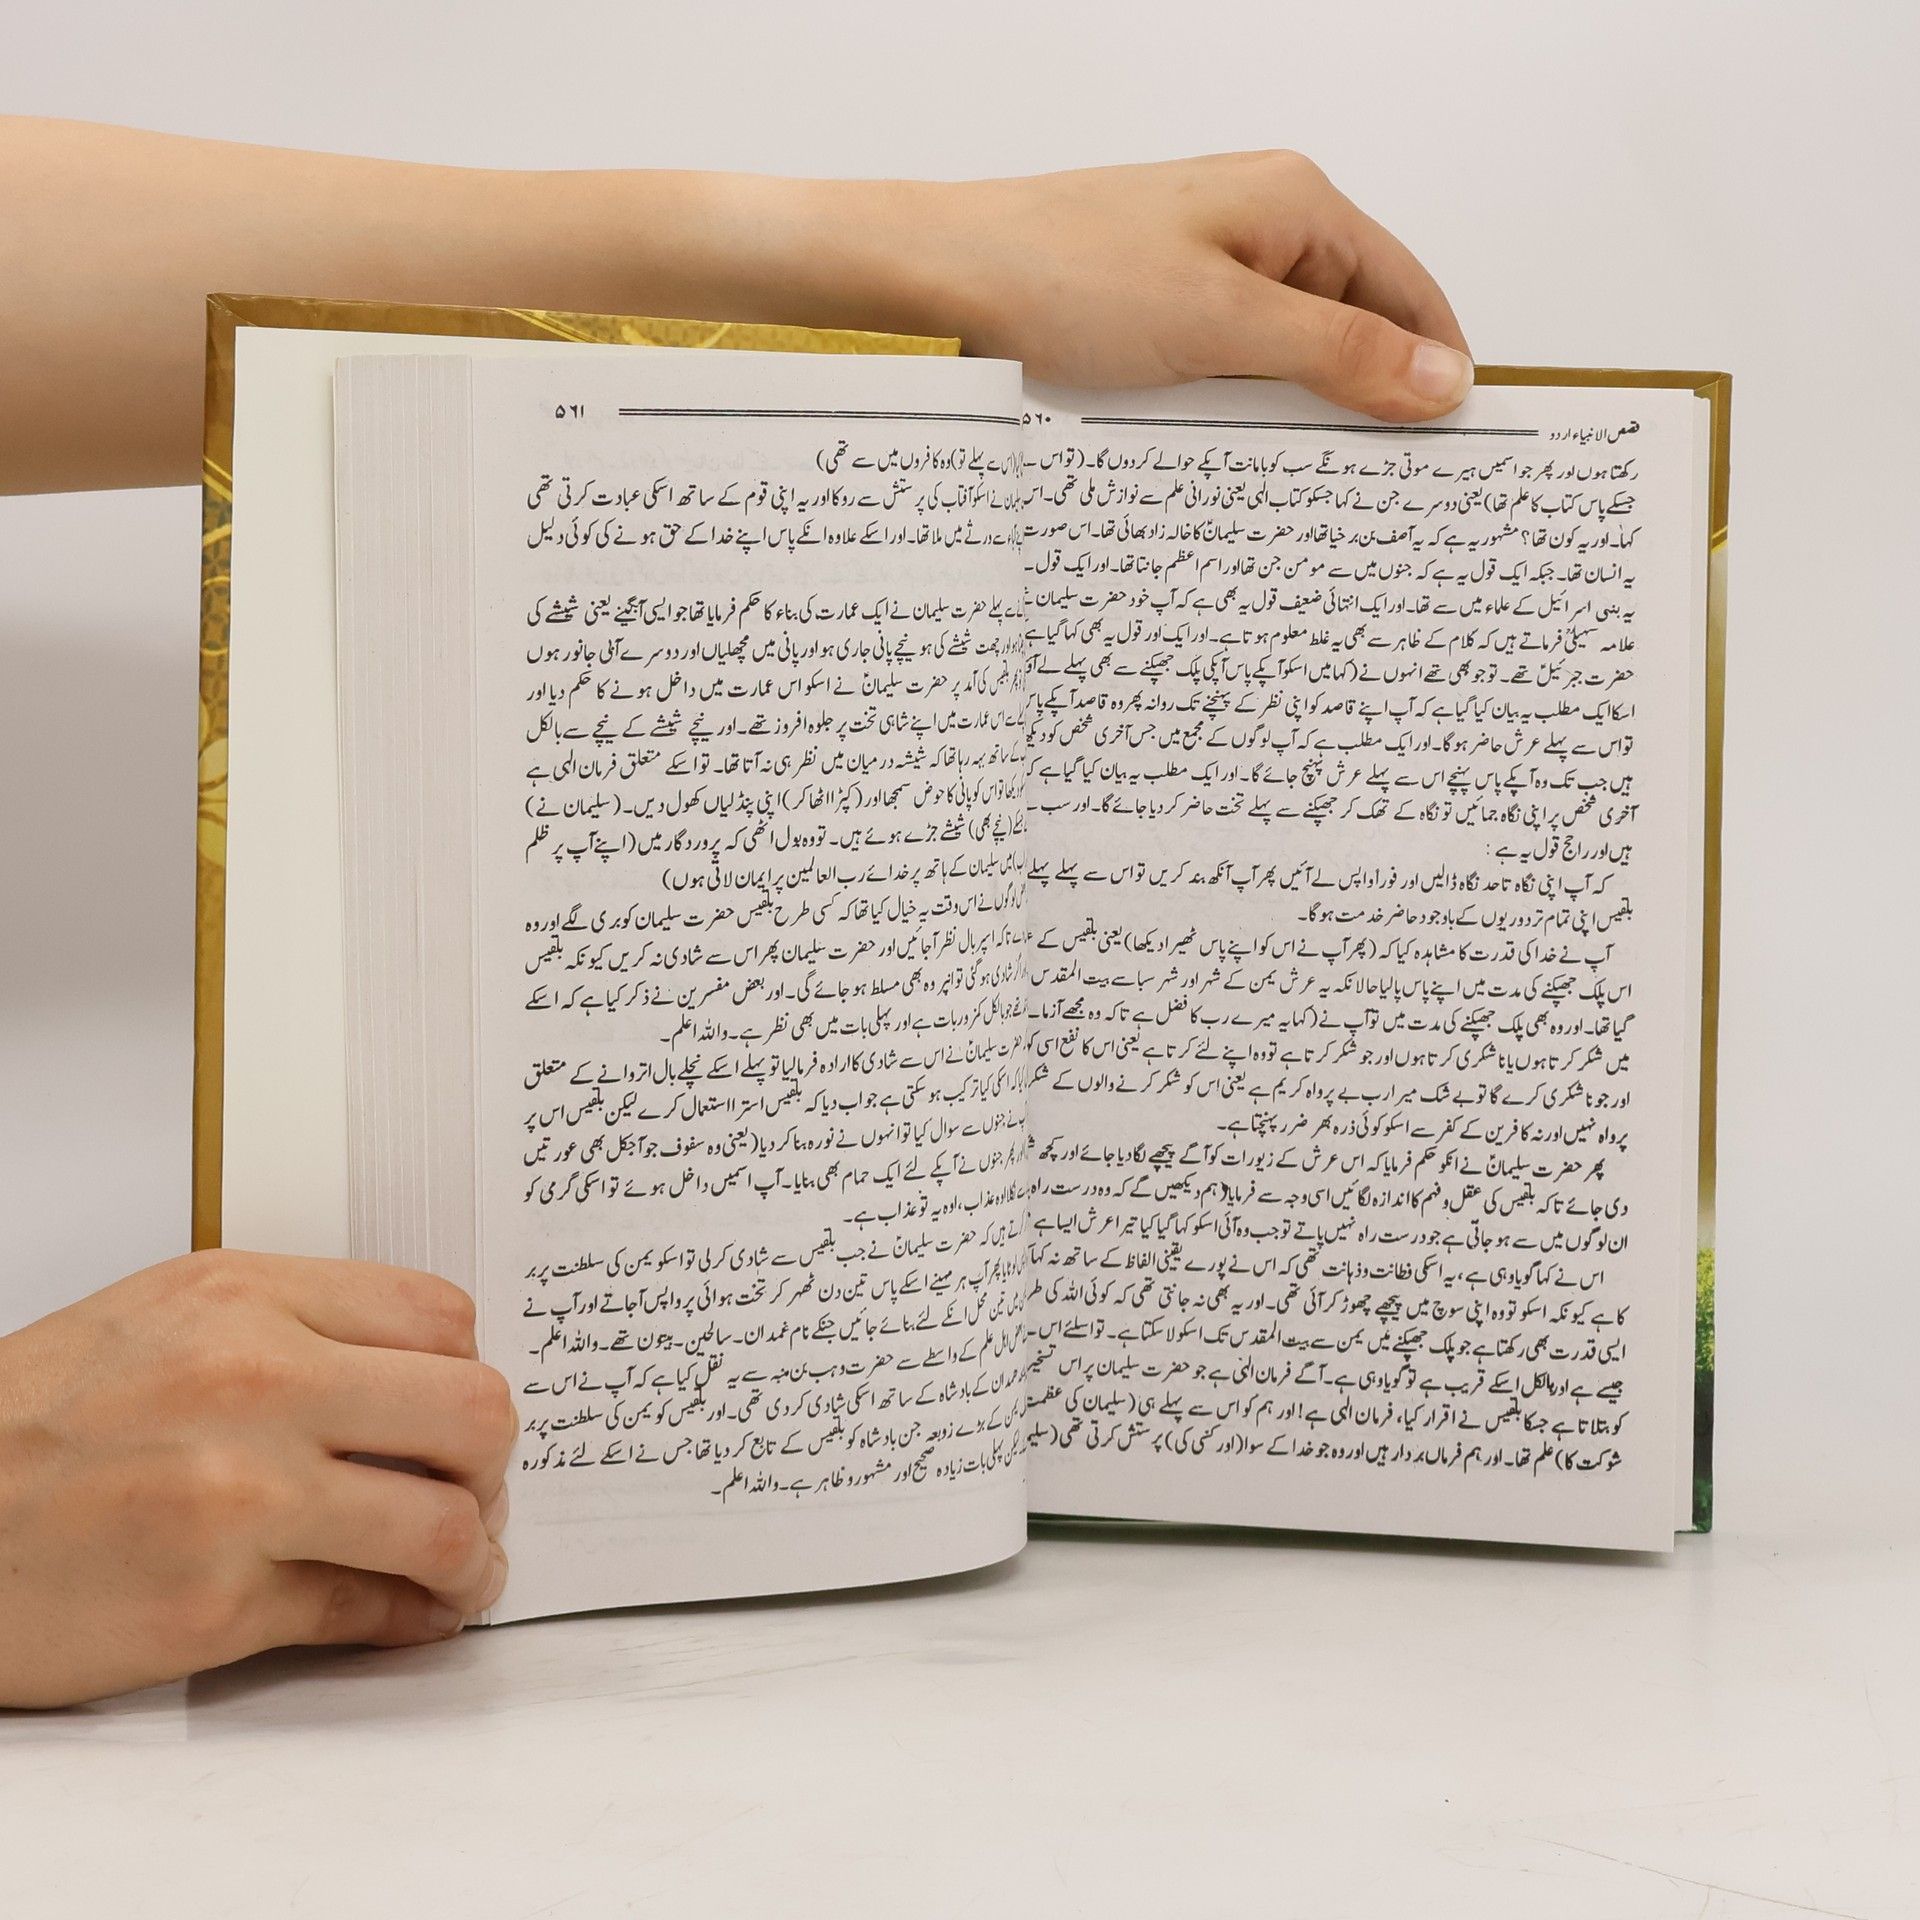 قصص الانبیاء اردو ۵۶۰
رکھتا ہوں اور پھر جو اسمیں ہیرے موتی جڑے ہونگے سب کو بامانت آپکے حوالے کردوں گا۔ (تو اس
جسکے پاس کتاب کا علم تھا) یعنی دوسرے جن نے کہا جسکو کتاب الٰہی یعنی نورانی علم سے نوازش ملی تھی۔ اس
کہا۔ اور یہ کون تھا؟ مشہور یہ ہے کہ یہ آصف بن برخیا تھا اور حضرت سلیمانؑ کا خالہ زاد بھائی تھا۔ اس صورت
یہ انسان تھا۔ جبکہ ایک قول یہ ہے کہ جنوں میں سے مومن جن تھا اور اسم اعظم جانتا تھا۔ اور ایک قول
یہ بنی اسرائیل کے علماء میں سے تھا۔ اور ایک انتہائی ضعیف قول یہ بھی ہے کہ آپ خود حضرت سلیمان
علامہ سہیلیؒ فرماتے ہیں کہ کلام کے ظاہر سے بھی یہ غلط معلوم ہوتا ہے۔ اور ایک اور قول یہ بھی کہا گیا ہے
حضرت جبرئیلؑ تھے۔ تو جو بھی تھے انہوں نے (کہا میں اسکو آپکے پاس آپکی پلک جھپکنے سے بھی پہلے لے آؤ
اسکا ایک مطلب یہ بیان کیا گیا ہے کہ آپ اپنے قاصد کو اپنی نظر کے پہنچنے تک روانہ پھر وہ قاصد آپکے پاس
تو اس سے پہلے عرش حاضر ہوگا۔ اور ایک مطلب ہے کہ آپ لوگوں کے مجمع میں جس آخری شخص کو دیکھ
ہیں جب تک وہ آپکے پاس پہنچے اس سے پہلے عرش پہنچ جائے گا۔ اور ایک مطلب یہ بیان کیا گیا ہے کہ
آخری شخص پر اپنی نگاہ جمائیں تو نگاہ کے تھک کر جھپکنے سے پہلے تخت حاضر کردیا جائے گا۔ اور سب
ہیں اور راجح قول یہ ہے :
کہ آپ اپنی نگاہ تاحد نگاہ ڈالیں اور فوراً واپس لے آئیں پھر آپ آنکھ بند کریں تو اس سے پہلے پہلے
بلقیس اپنی تمام تر دوریوں کے باوجود حاضر خدمت ہوگا۔
آپ نے خدا کی قدرت کا مشاہدہ کیا کہ (پھر آپ نے اس کو اپنے پاس ٹھہرا دیکھا) یعنی بلقیس کے
اس پلک جھپکنے کی مدت میں اپنے پاس پالیا حالانکہ یہ عرش یمن کے شہر اور شہر سبا سے بیت المقدس
گیا تھا۔ اور وہ بھی پلک جھپکنے کی مدت میں تو آپ نے (کہا یہ میرے رب کا فضل ہے تاکہ وہ مجھے آزما
میں شکر کرتا ہوں یا ناشکری کرتا ہوں اور جو شکر کرتا ہے تو وہ اپنے لئے کرتا ہے یعنی اس کا نفع اسی کو
اور جو ناشکری کرے گا تو بے شک میرا رب بے پرواہ کریم ہے یعنی اس کو شکر کرنے والوں کے شکر
پرواہ نہیں اور نہ کافرین کے کفر سے اسکو کوئی ذرہ بھر ضرر پہنچتا ہے۔
پھر حضرت سلیمانؑ نے انکو حکم فرمایا کہ اس عرش کے زیورات کو آگے پیچھے لگا دیا جائے اور کچھ
دی جائے تاکہ بلقیس کی عقل و فہم کا اندازہ لگائیں اسی وجہ سے فرمایا (ہم دیکھیں گے کہ وہ درست راہ
ان لوگوں میں سے ہو جاتی ہے جو درست راہ نہیں پاتے تو جب وہ آئی اسکو کہا گیا کیا تیرا عرش ایسا ہے
اس نے کہا گویا وہی ہے، یہ اسکی فطانت و ذہانت تھی کہ اس نے پورے یقینی الفاظ کے ساتھ نہ کہا
کا ہے کیونکہ اسکو تو وہ اپنی سوچ میں پیچھے چھوڑ کر آئی تھی۔ اور یہ بھی نہ جانتی تھی کہ کوئی اللہ کی طر
ایسی قدرت بھی رکھتا ہے جو پلک جھپکنے میں یمن سے بیت المقدس تک اسکو لا سکتا ہے۔ تو اسلئے اس
جیسے ہے اور بالکل اسکے قریب ہے تو گویا وہی ہے۔ آگے فرمان الٰہی ہے جو حضرت سلیمان پر اس تسخیر
کو بتلاتا ہے جسکا بلقیس نے اقرار کیا، فرمان الٰہی ہے! اور ہم کو اس سے پہلے ہی (سلیمان کی عظمت
شوکت کا) علم تھا۔ اور ہم فرماں بردار ہیں اور وہ جو خدا کے سوا (اور کسی کی) پرستش کرتی تھی (سلیم
۵۶۱
سے پہلے تو) وہ کافروں میں سے تھی)
نے اسکو آفتاب کی پرستش سے روکا اور یہ اپنی قوم کے ساتھ اسکی عبادت کرتی تھی
سے ورثے میں ملا تھا۔ اور اسکے علاوہ انکے پاس اپنے خدا کے حق ہونے کی کوئی دلیل
سے پہلے حضرت سلیمان نے ایک عمارت کی بناء کا حکم فرمایا تھا جو ایسی آبگینے یعنی شیشے کی
اور چھت شیشے کی ہو نیچے پانی جاری ہو اور پانی میں مچھلیاں اور دوسرے آبی جانور ہوں
بلقیس کی آمد پر حضرت سلیمانؑ نے اسکو اس عمارت میں داخل ہونے کا حکم دیا اور
اس عمارت میں اپنے شاہی تخت پر جلوہ افروز تھے۔ اور نیچے شیشے کے نیچے سے بالکل
کے ساتھ بہہ رہا تھا کہ شیشہ درمیان میں نظر ہی نہ آتا تھا۔ تو اسکے متعلق فرمان الٰہی ہے
دیکھا تو اس کو پانی کا حوض سمجھا اور (کپڑا اٹھا کر) اپنی پنڈلیاں کھول دیں۔ (سلیمان نے)
(نیچے بھی) شیشے جڑے ہوئے ہیں۔ تو وہ بول اٹھی کہ پروردگار میں (اپنے آپ پر ظلم
میں سلیمان کے ہاتھ پر خدائے رب العالمین پر ایمان لاتی ہوں)
لوگوں نے اس وقت یہ خیال کیا تھا کہ کسی طرح بلقیس حضرت سلیمان کو بری لگے اور وہ
تاکہ اسپر بال نظر آجائیں اور حضرت سلیمان پھر اس سے شادی نہ کریں کیونکہ بلقیس
شادی ہوگئی تو انپر وہ بھی مسلط ہو جائے گی۔ اور بعض مفسرین نے ذکر کیا ہے کہ اسکے
جو بالکل کمزور بات ہے اور پہلی بات میں بھی نظر ہے۔ واللہ اعلم۔
حضرت سلیمانؑ نے اس سے شادی کا ارادہ فرمالیا تو پہلے اسکے نچلے بال اتروانے کے متعلق
کہ اسکی کیا ترکیب ہو سکتی ہے جواب دیا کہ بلقیس استرا استعمال کرے لیکن بلقیس اس پر
نے جنوں سے سوال کیا تو انہوں نے نورہ بنا کر دیا (یعنی وہ سفوف جو آجکل بھی عورتیں
اور پھر جنوں نے آپکے لئے ایک حمام بھی بنایا۔ آپ اسمیں داخل ہوئے تو اسکی گرمی کو
عذاب، اوہ یہ تو عذاب ہے۔
کرتے ہیں کہ حضرت سلیمانؑ نے جب بلقیس سے شادی کرلی تو اسکو یمن کی سلطنت پر بر
لوٹایا پھر آپ ہر مہینے اسکے پاس تین دن ٹھہر کر تخت ہوائی پر واپس آجاتے اور آپ نے
میں تین محل انکے لئے بنائے جائیں جنکے نام غمدان۔ سالحین۔ بیتون تھے۔ واللہ اعلم۔
بعض اہل علم کے واسطے سے حضرت وہب بن منبہ سے یہ نقل کیا ہے کہ آپ نے اس سے
ہمدان کے بادشاہ کے ساتھ اسکی شادی کر دی تھی۔ اور بلقیس کو یمن کی سلطنت پر بر
یمن کے بڑے زوبعہ جن بادشاہ کو بلقیس کے تابع کر دیا تھا جس نے اسکے لئے مذکورہ
لیکن پہلی بات زیادہ صحیح اور مشہور و ظاہر ہے۔ واللہ اعلم۔